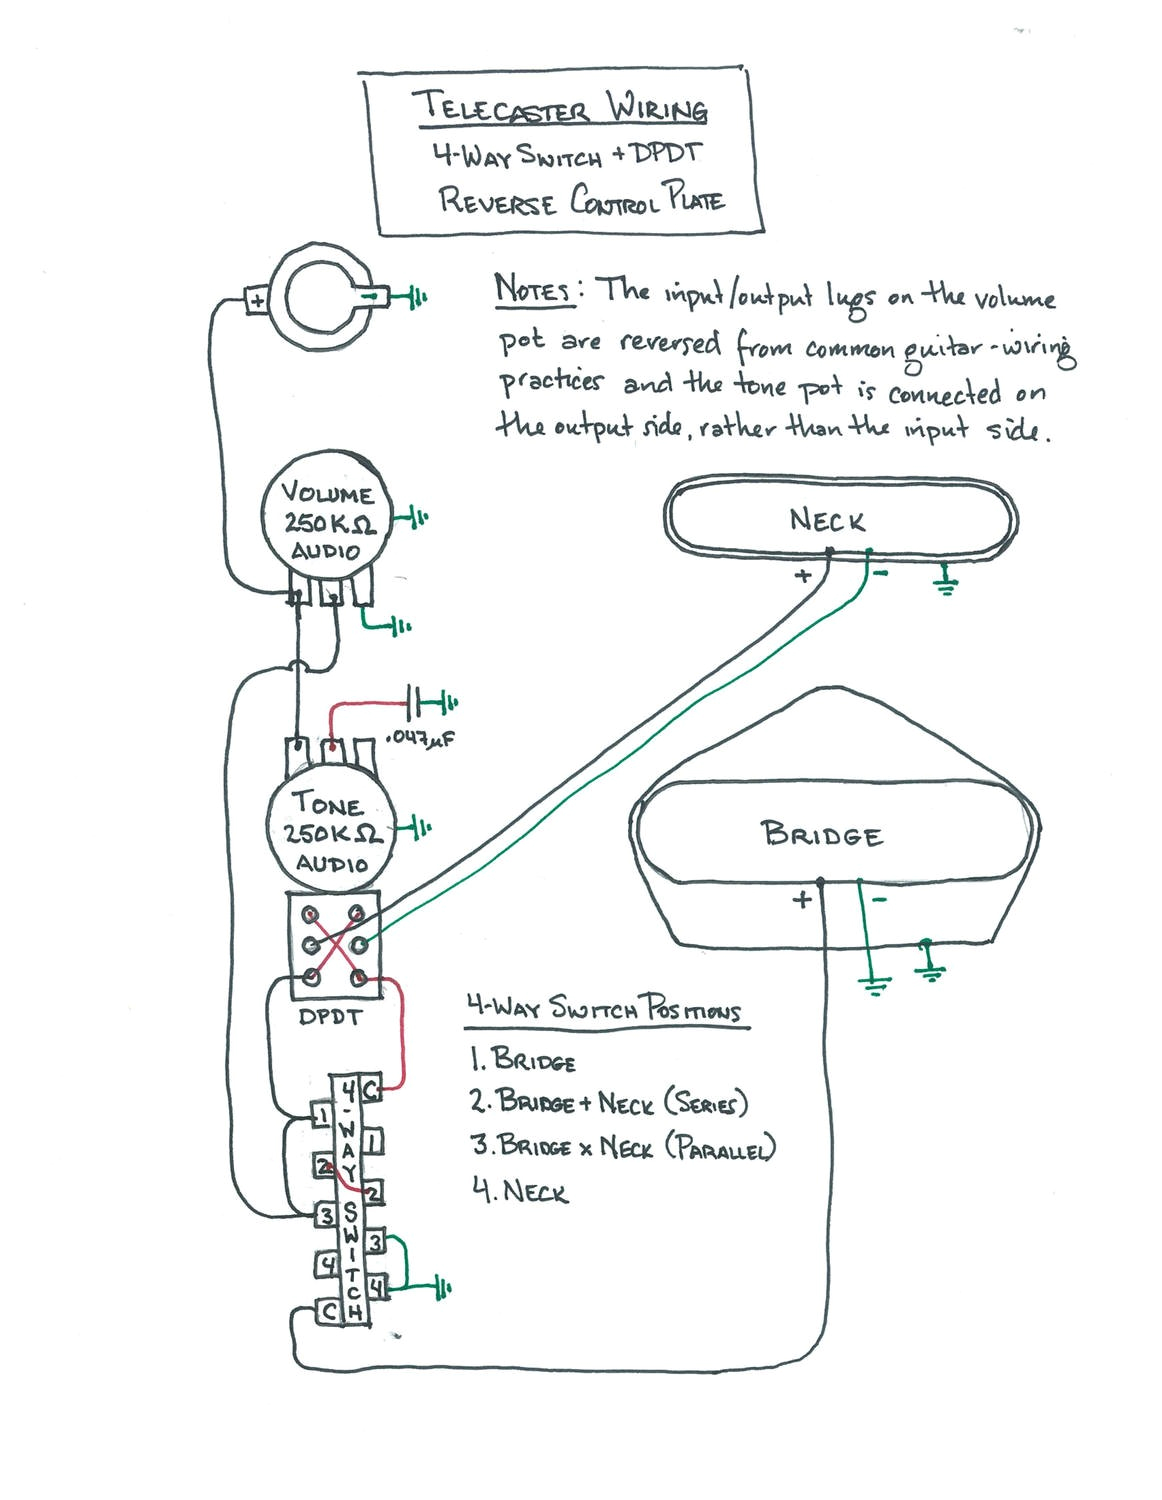 TELECASTER WIRING
4-WAY SWITCH + DPDT
REVERSE CONTROL PLATE
+
-
NOTES: The input/output lugs on the volume
pot are reversed from common guitar-wiring
practices and the tone pot is connected on
the output side, rather than the input side.
VOLUME
250KΩ
AUDIO
NECK
+
-
.047µF
TONE
250KΩ
AUDIO
BRIDGE
+
-
DPDT
4-WAY SWITCH POSITIONS
1. BRIDGE
2. BRIDGE + NECK (SERIES)
3. BRIDGE x NECK (PARALLEL)
4. NECK
4-WAY SWITCH
C
1
1
2
2
3
3
4
4
C